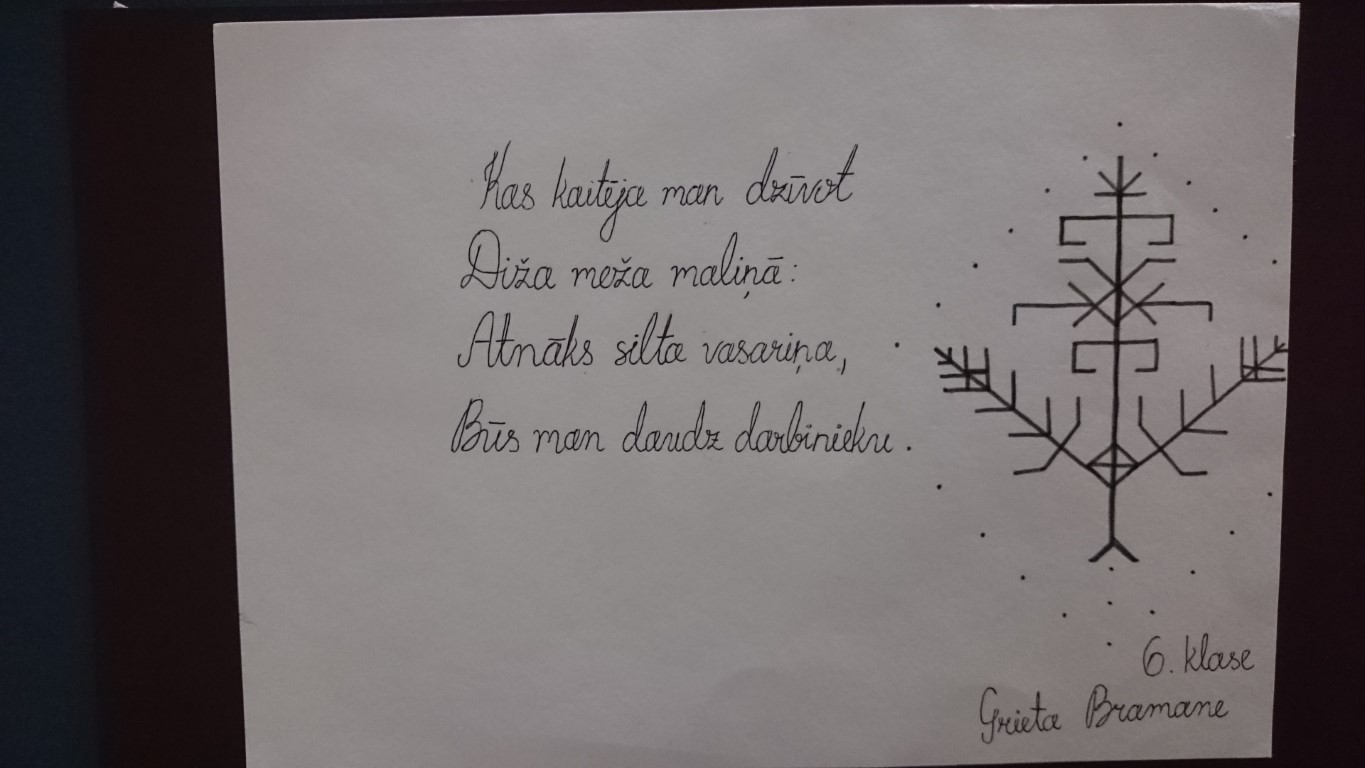 Kas kaitēja man dzīvot
Diža meža maliņā:
Atnāks silta vasariņa,
Būs man daudz darbinieku.
6. klase
Grieta Bramane